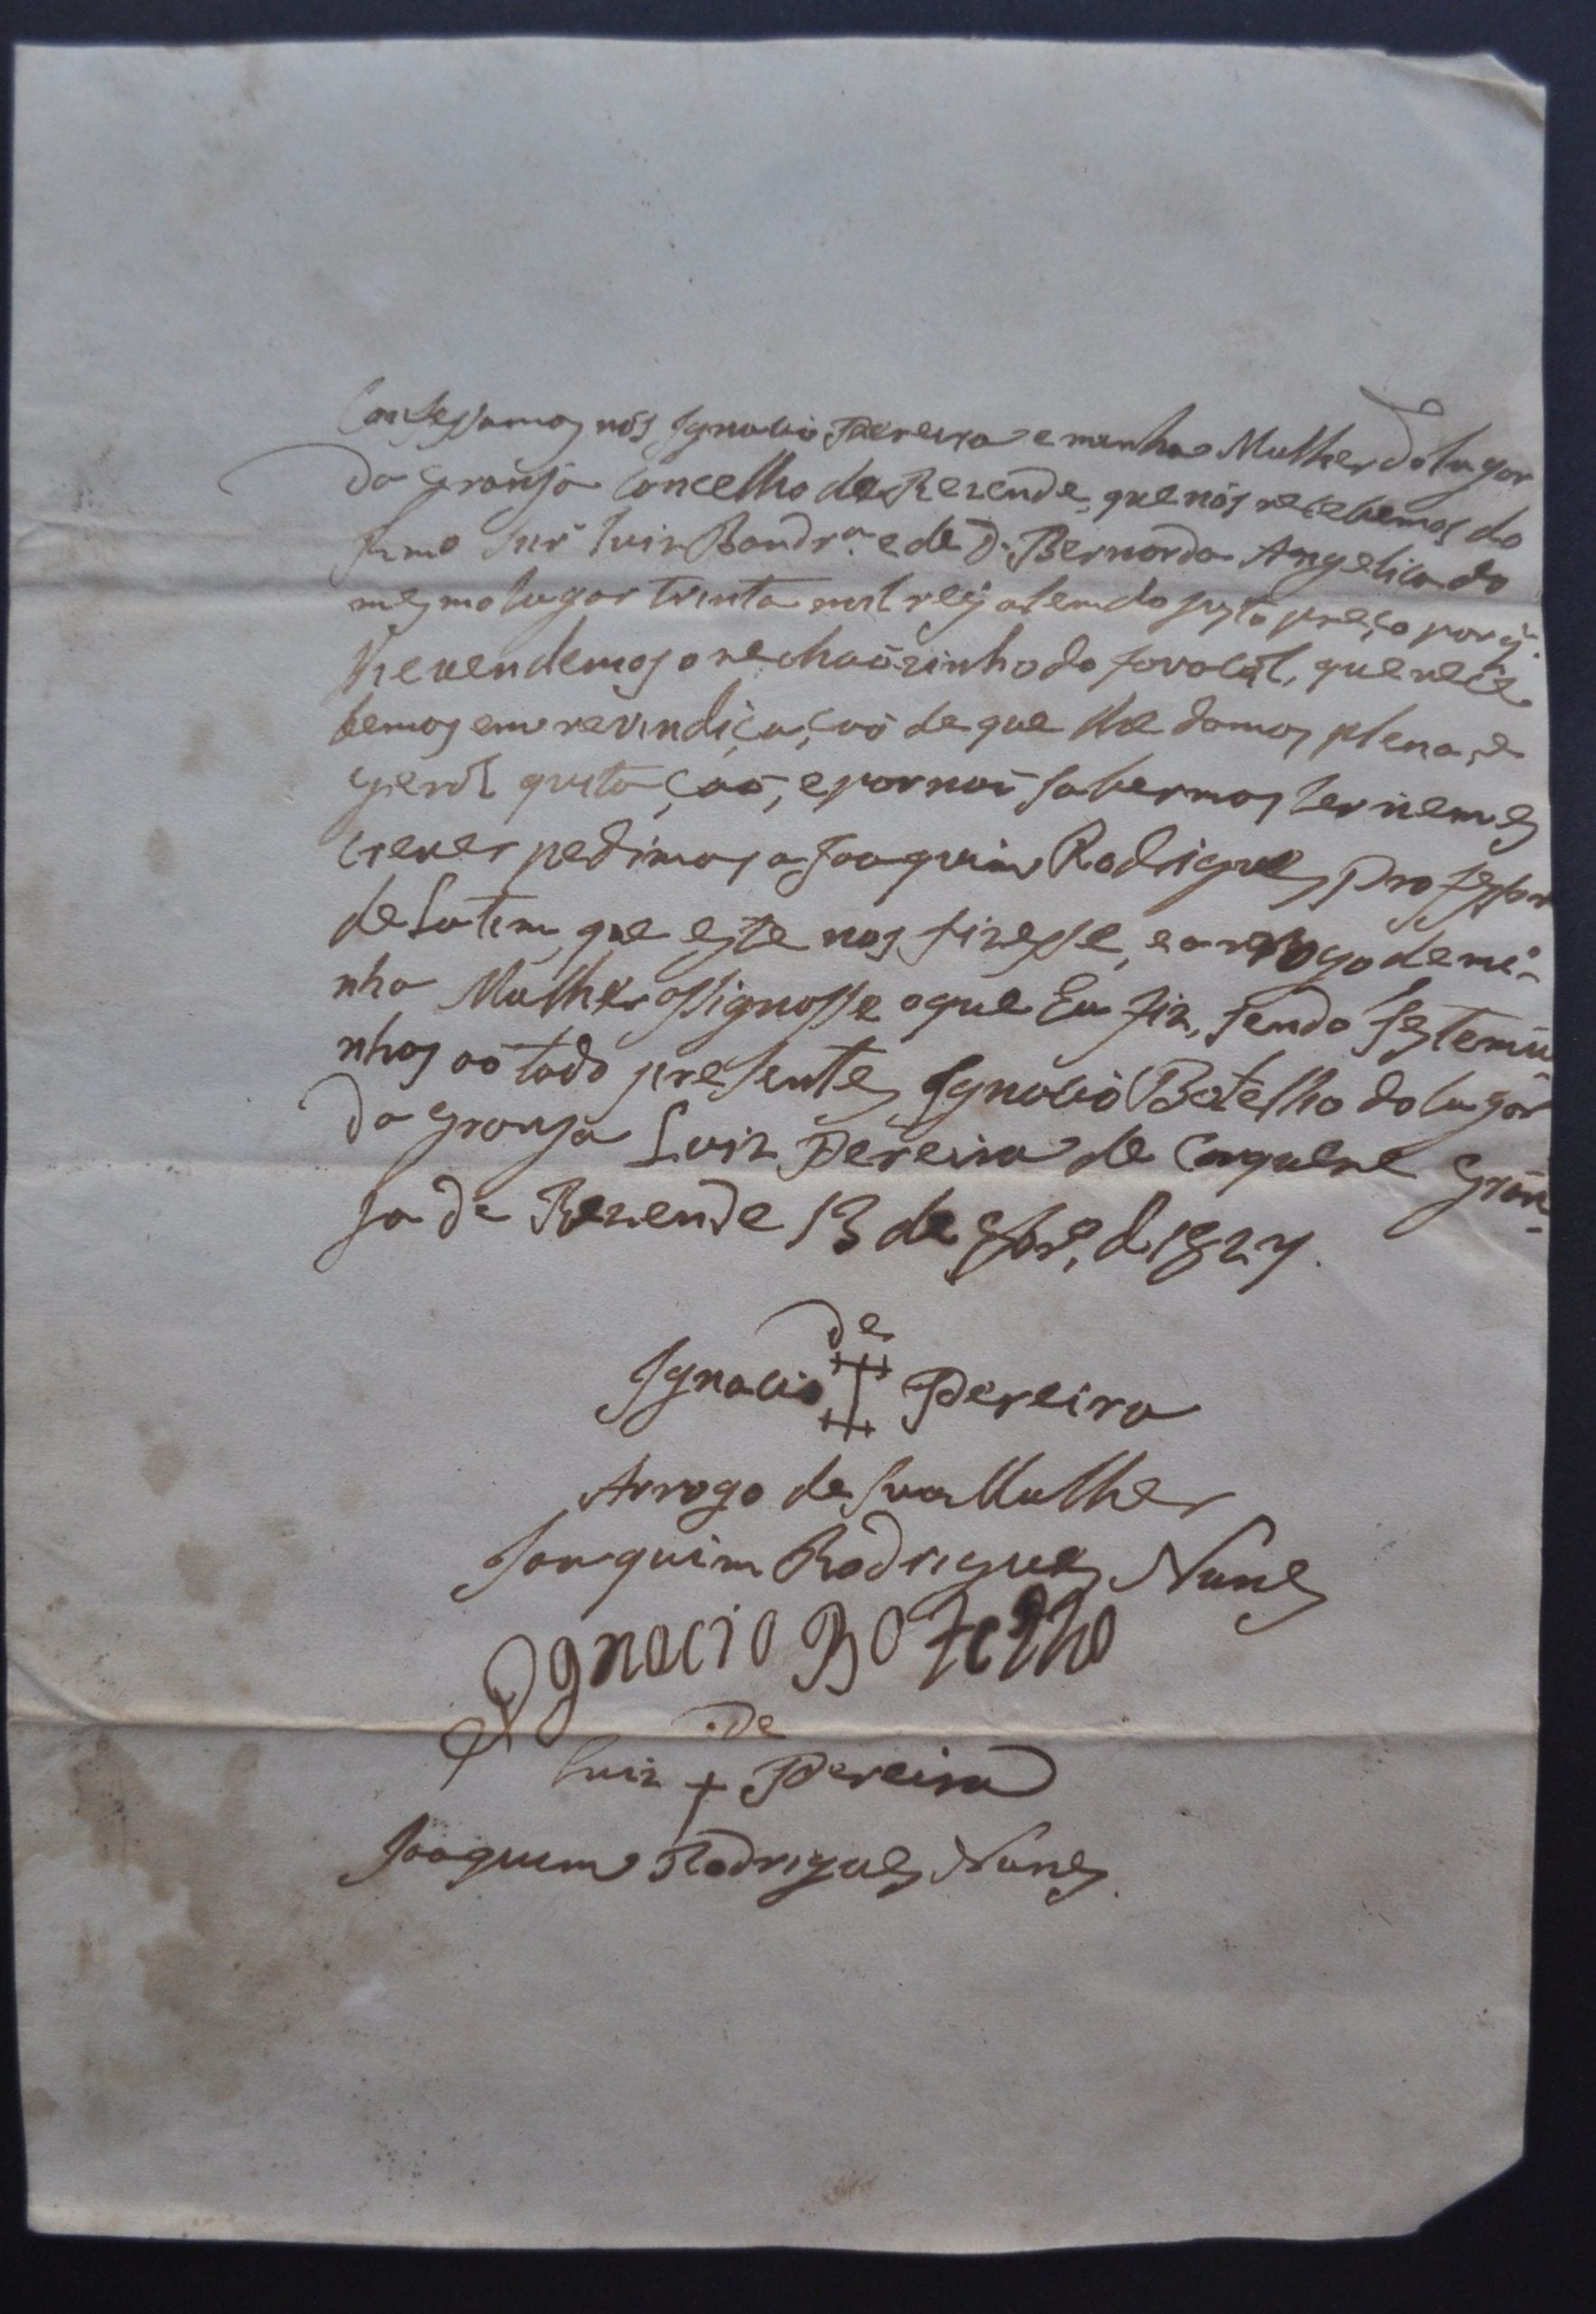 Confessamos nós Ignacio Pereira e minha Mulher do lugar
da Granja Concelho de Rezende, que nós recebemos do
Illmo Snr Luiz Bandra. e de D. Bernarda Angelica do
mesmo lugar trinta mil reis alem do justo preço porq̃
lhe vendemos o nechaõzinho do fovolal, que rece
bemos em revindicaçaõ de que lhe damos plena, e
geral quitaçaõ, e por naõ sabermos ler nem es
crever pedimos a Joaquim Rodrigues Professor
de Latim que este nos fizesse, e a rogo de mi-
nha Mulher assignasse o que Eu fiz, sendo Testemu
nhas aõ todo presentes Ignacio Botelho do lugar
da Granja Luiz Pereira de Carquere Gran-
ja de Rezende 13 de de 1827.
De
Ignacio Pereira
Arrogo de sua Mulher
Joaquim Rodrigues Nunes
Ignacio Botelho
De
Luiz + Pereira
Joaquim Rodrigues Nunes